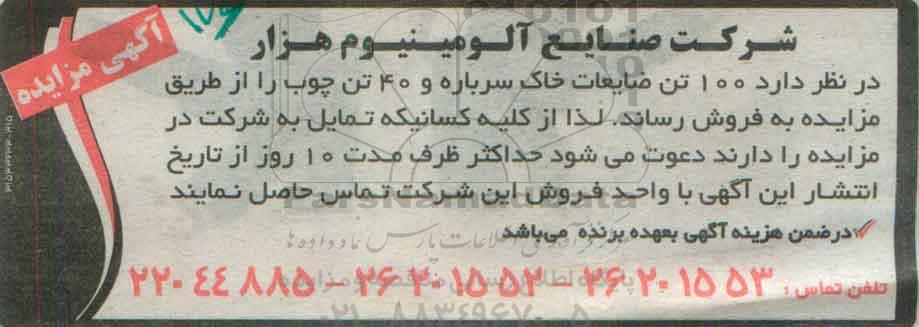 آگهی مزایده
شرکت صنایع آلومینیوم هزار
در نظر دارد ۱۰۰ تن ضایعات خاک سرباره و ۴۰ تن چوب را از طریق
مزایده به فروش رساند. لذا از کلیه کسانیکه تمایل به شرکت در
مزایده را دارند دعوت می شود حداکثر ظرف مدت ۱۰ روز از تاریخ
انتشار این آگهی با واحد فروش این شرکت تماس حاصل نمایند
درضمن هزینه آگهی بعهده برنده می‌باشد
تلفن تماس : ۲۶۲۰۱۵۵۳ - ۲۶۲۰۱۵۵۲ - ۲۲۰۴۴۸۸۵
۰۲۱-۸۸۳۴۹۶۷۰-۵